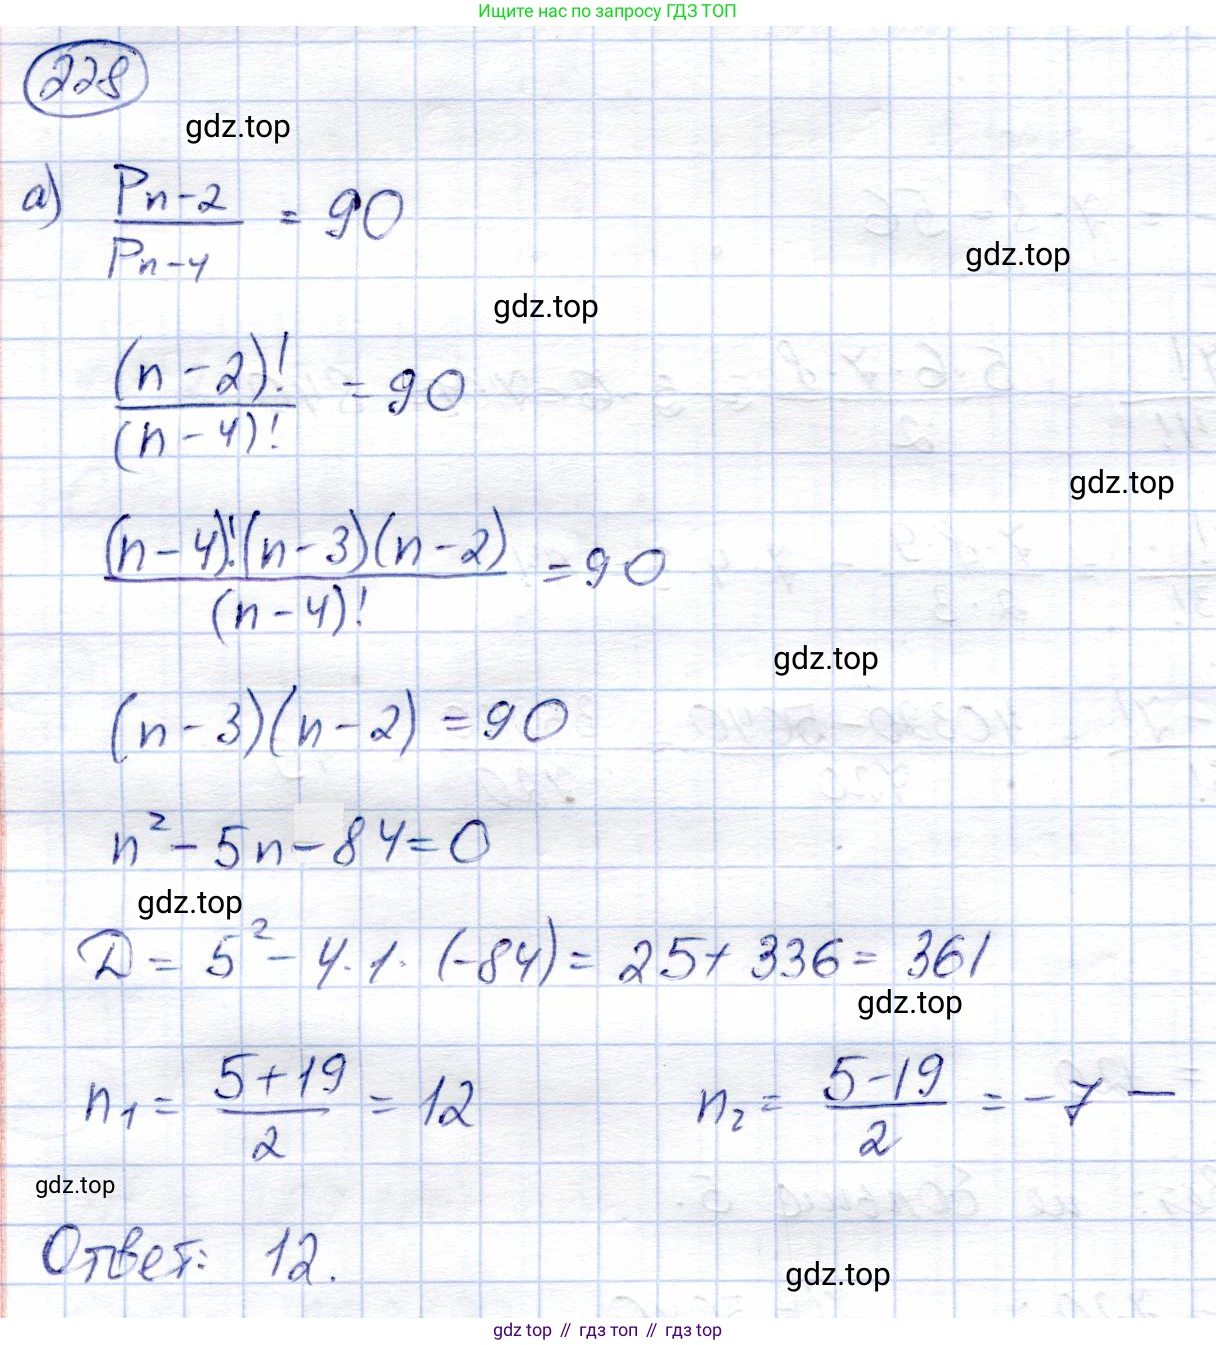 Ищите нас по запросу ГДЗ ТОП
228
gdz.top
а) Pn-2 / Pn-4 = 90
gdz.top
gdz.top
(n-2)! / (n-4)! = 90
gdz.top
(n-4)!(n-3)(n-2) / (n-4)! = 90
gdz.top
(n-3)(n-2) = 90
n² - 5n - 84 = 0
gdz.top
D = 5² - 4·1·(-84) = 25 + 336 = 361
gdz.top
n₁ = 5+19 / 2 = 12 n₂ = 5-19 / 2 = -7 —
gdz.top
Ответ: 12.
gdz.top
gdz top // гдз топ // gdz top